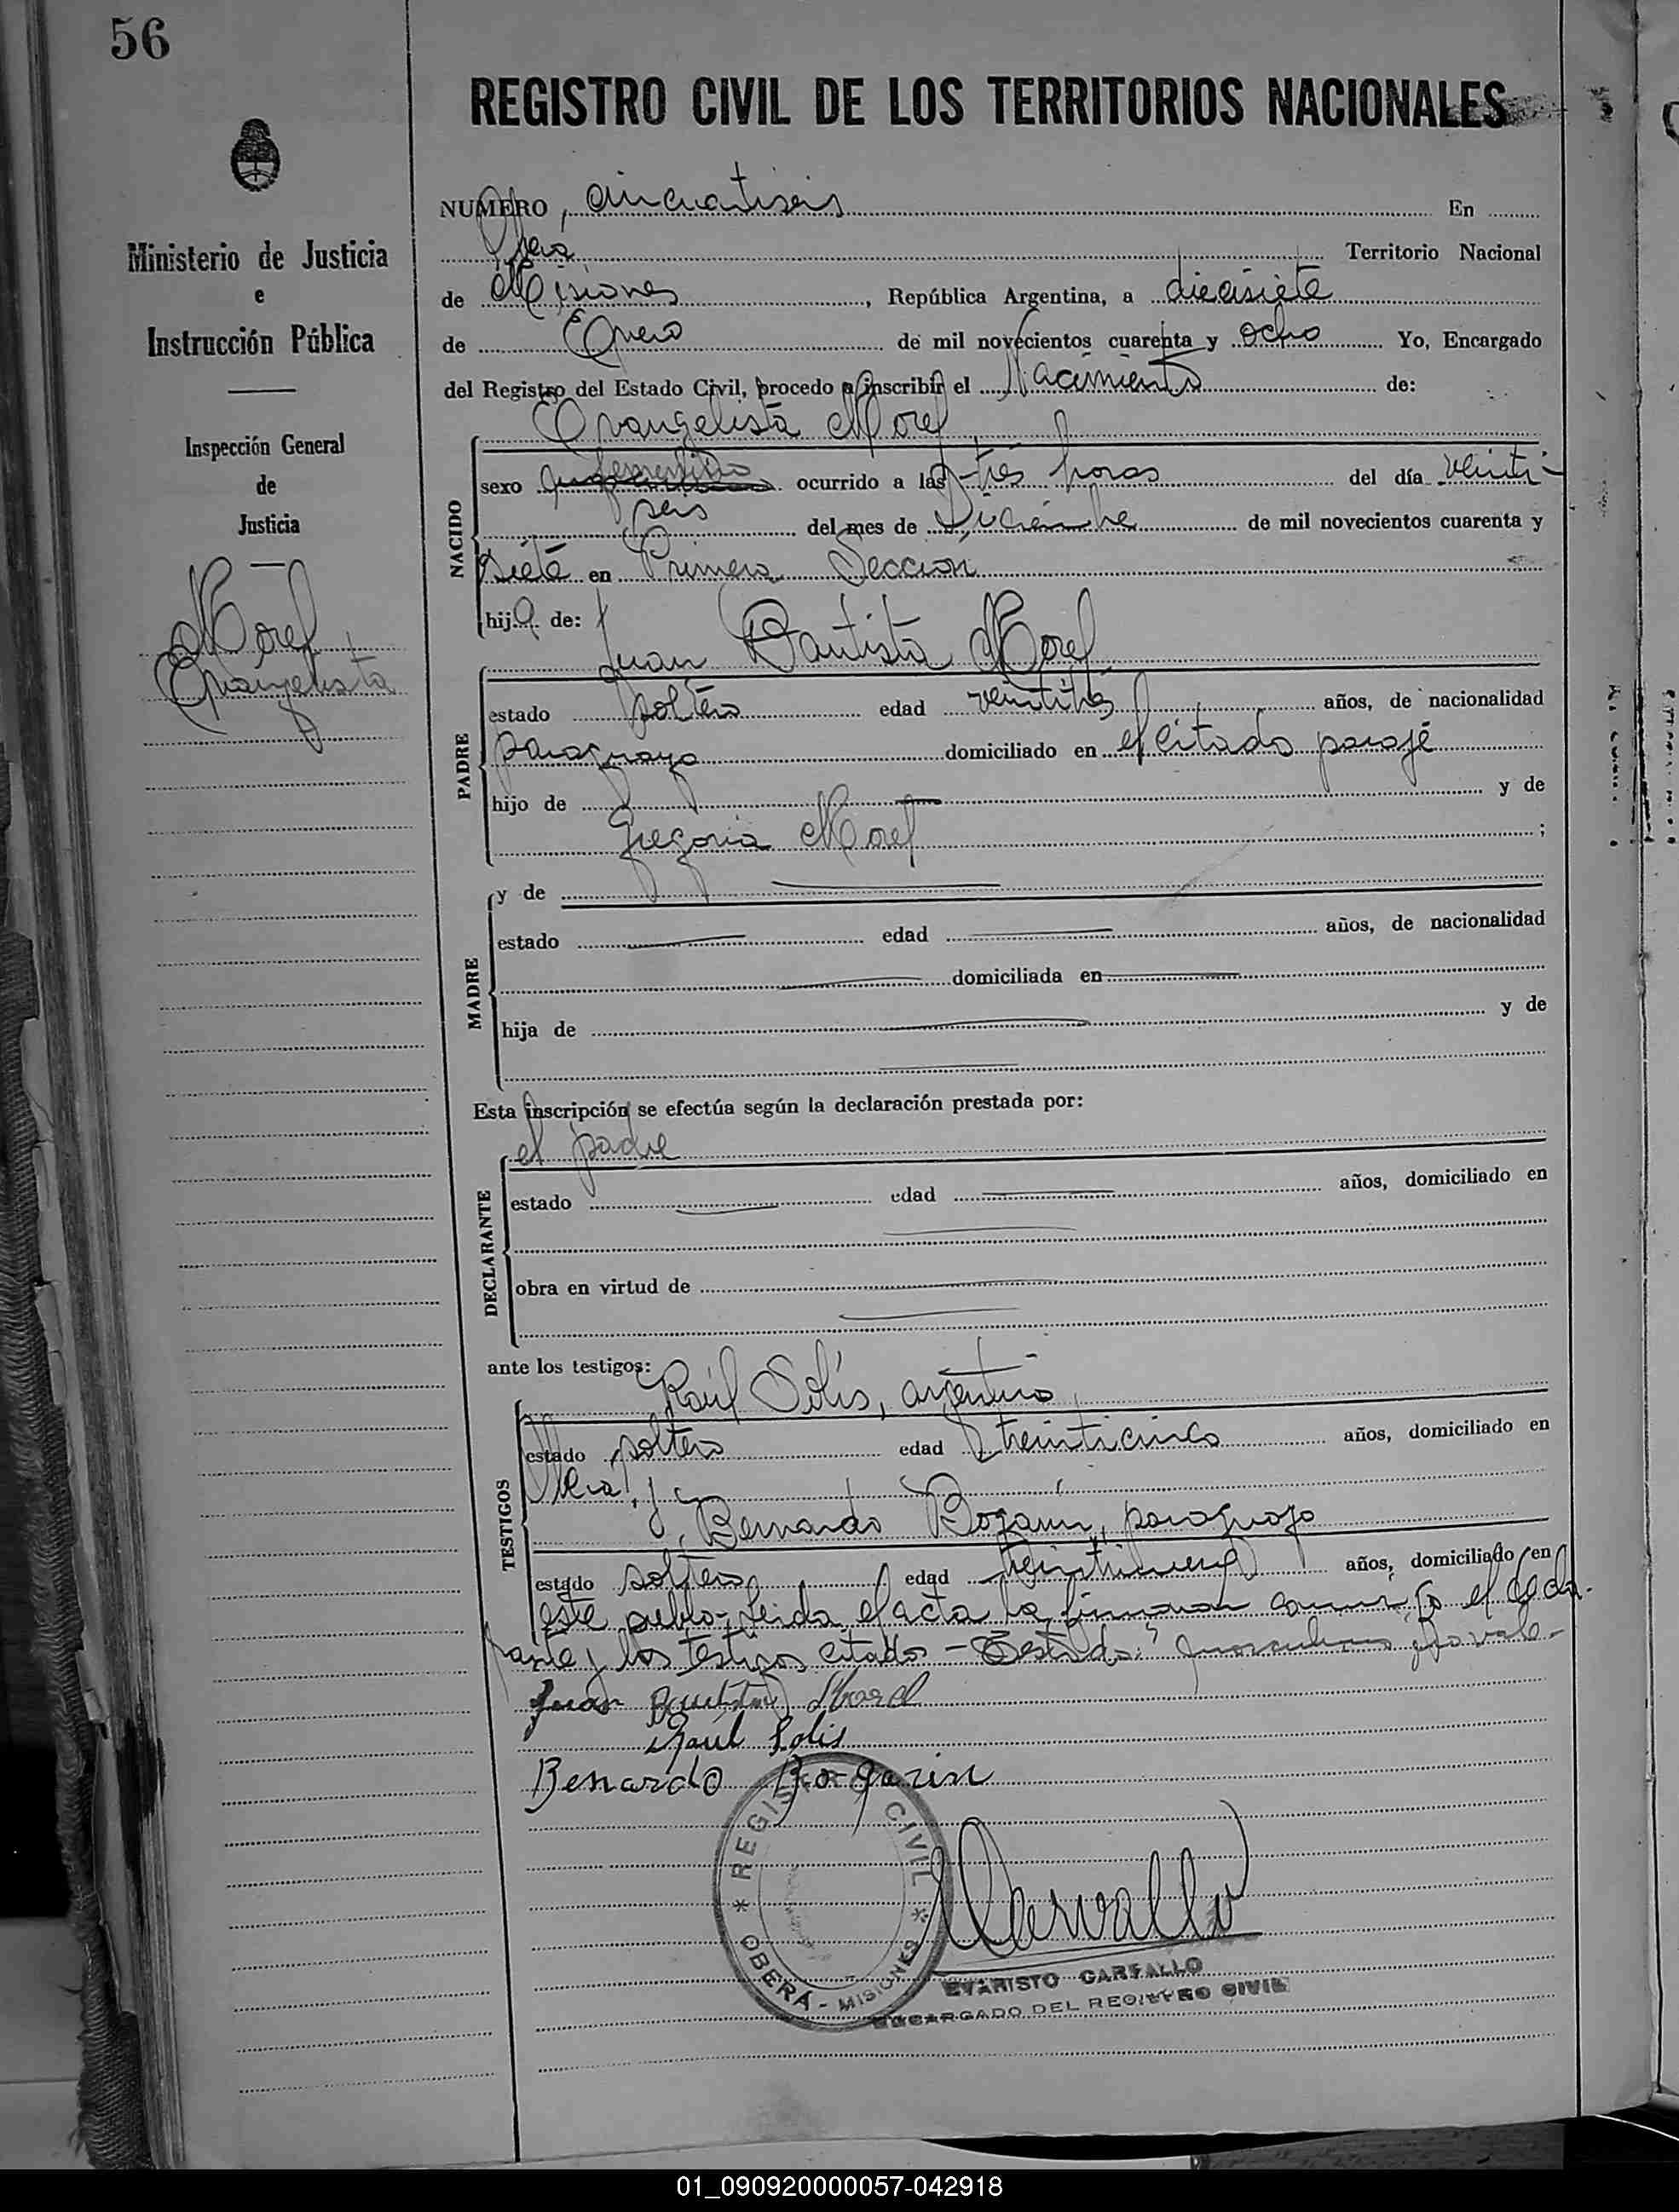 56
REGISTRO CIVIL DE LOS TERRITORIOS NACIONALES
Ministerio de Justicia
e
Instrucción Pública
Inspección General
de
Justicia
Morel
Evangelista
NUMERO, cincuentiseis En
Oberá Territorio Nacional
de Misiones, República Argentina, a diecisiete
de Enero de mil novecientos cuarenta y ocho Yo, Encargado
del Registro del Estado Civil, procedo a inscribir el Nacimiento de:
Evangelista Morel
NACIDO
sexo femenino ocurrido a las tres horas del día veinti-
seis del mes de Diciembre de mil novecientos cuarenta y
siete en Primera Sección
hija de:
Juan Bautista Morel
PADRE
estado soltero edad años, de nacionalidad
paraguaya domiciliado en el citado paraje
hijo de y de
Gregoria Morel ;
y de
MADRE
estado edad años, de nacionalidad
domiciliada en
hija de y de
Esta inscripción se efectúa según la declaración prestada por:
el padre
DECLARANTE
estado edad años, domiciliado en
obra en virtud de
ante los testigos:
Raúl Solís, argentino
TESTIGOS
estado soltero edad treinticinco años, domiciliado en
Oberá, y
Bernardo Bogarín, paraguayo
estado soltero edad años, domiciliado en
este pueblo - Leida el acta la firmaron conmigo el decla-
rante y los testigos citados - Testado: "masculino" no vale -
Juan Bautista Morel
Raúl Solis
Benardo Bogarin
REGISTRO CIVIL
* OBERÁ - MISIONES *
Carvallo
EVARISTO CARVALLO
ENCARGADO DEL REGISTRO CIVIL
01_090920000057-042918